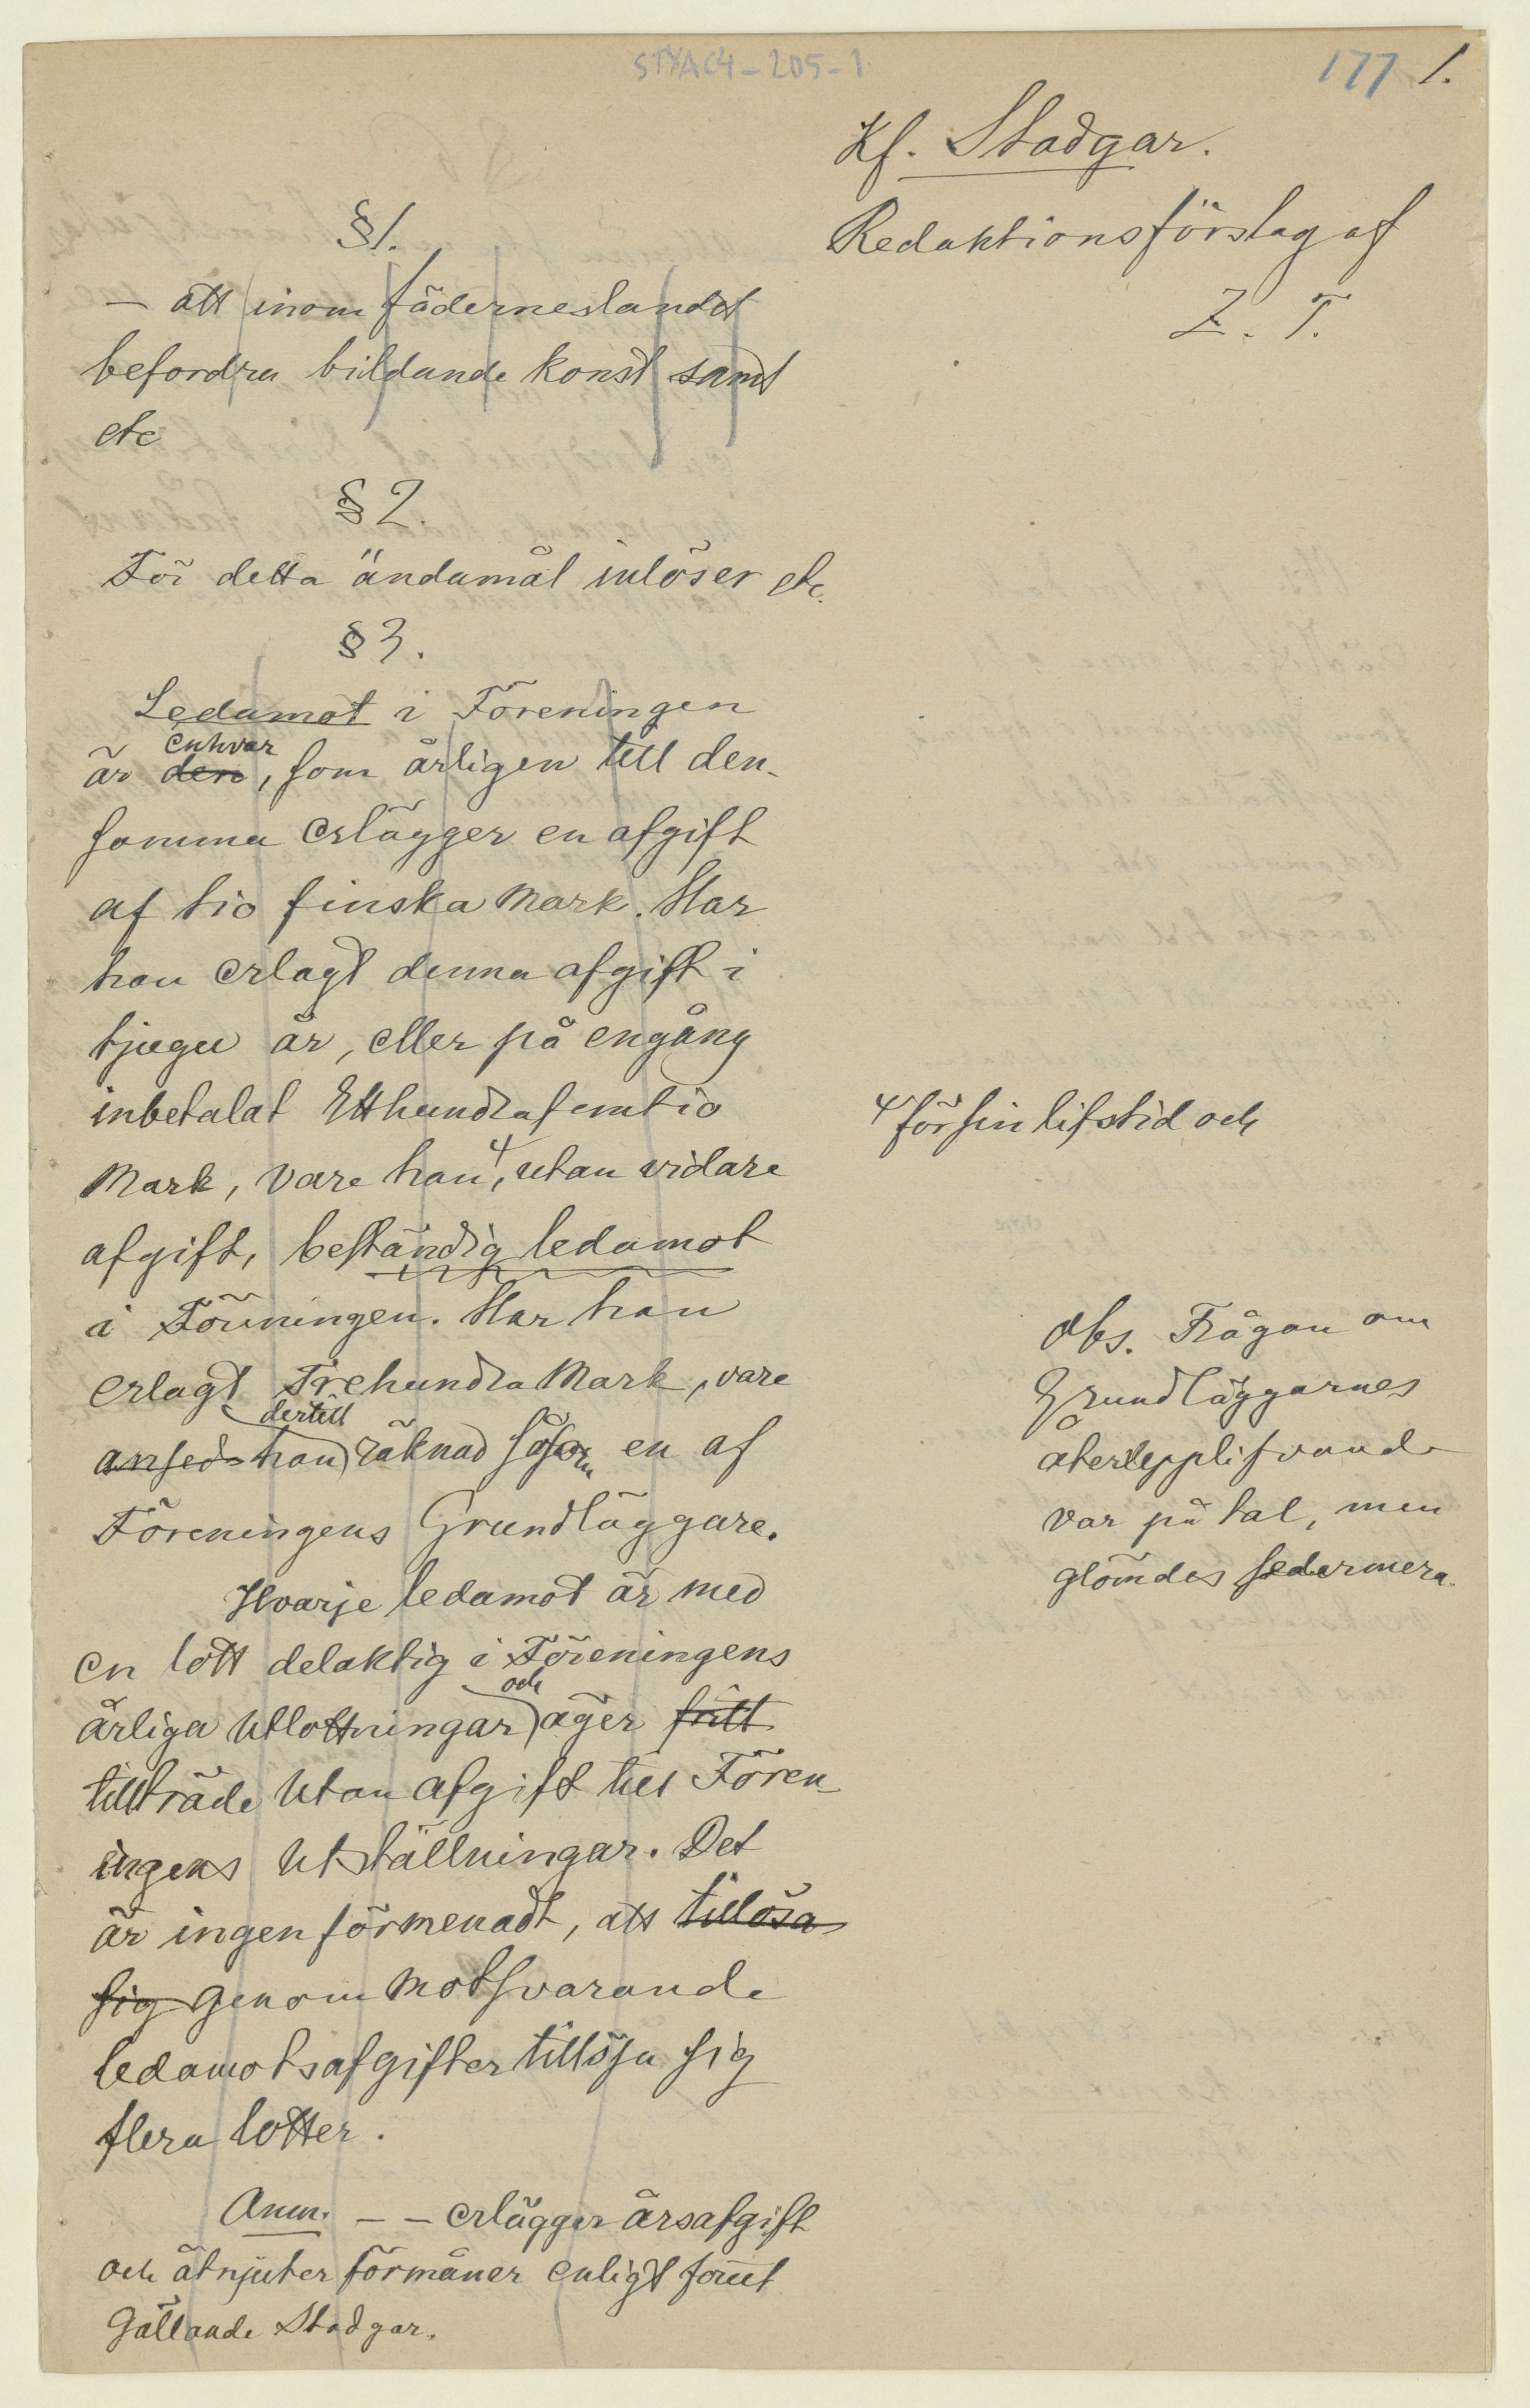 STXAC4-205-1
177 1.
Kf. Stadgar.
Redaktionsförslag af
Z. T.
§ 1.
— att inom fäderneslandet
befordra bildande konst samt
etc
§ 2.
För detta ändamål inlöser etc.
§ 3.
Ledamot i Föreningen
enhvar
är den, som årligen till den-
samma erlägger en afgift
af tio finska Mark. Har
han erlagt denna afgift i
tjugu år, eller på engång
inbetalat Etthundrafemtio
Mark, vare han, utan vidare
afgift, beständig ledamot
i Föreningen. Har han
erlagt Trehundra Mark, vare
dertill
anseds han räknad såsom en af
Föreningens Grundläggare.
Hvarje ledamot är med
en lott delaktig i Föreningens
och
årliga utlottningar äger fritt
tillträde utan afgift till Fören-
ingens utställningar. Det
är ingen förmenadt, att tillösa
sig genom motsvarande
ledamotsafgifter tillösa sig
flera lotter.
Anm. — — erlägger årsafgift
och åtnjuter förmåner enligt förut
gällande Stadgar.
för sin lifstid och
Obs. Frågan om
Grundläggarnes
återupplifvande
var på tal, men
glömdes sedermera.